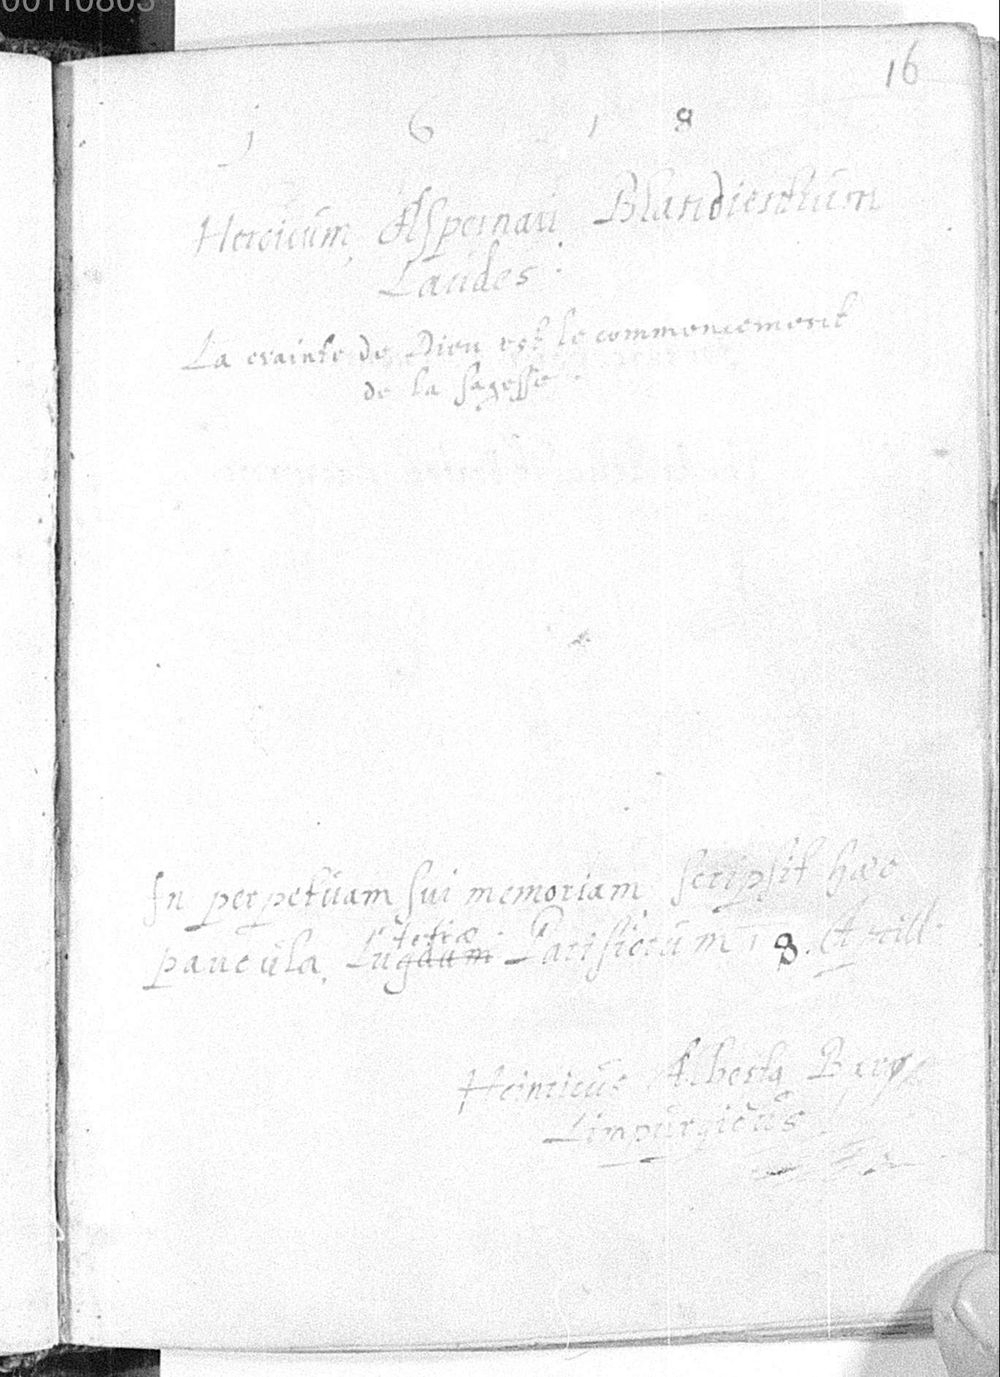 00110803
16
1 6 1 8
Heroicum Aspernari Blandientium
Laudes.
La crainte de Dieu est le commencement
de la sagesse.
In perpetuam sui memoriam scripsit hæc
tetiæ
paucula, Lugdum Parisiorum 18. Aprill
Heinricus Alberta
Limpurgicus